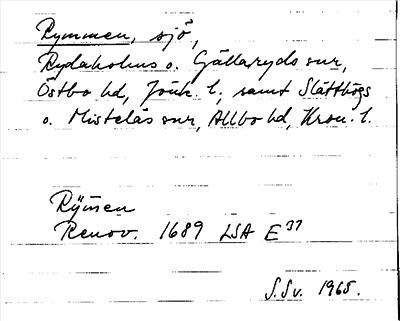 Rymmen, sjö,
Rydaholms o. Gällaryds snr,
Östbo hd, Jönk. l., samt Slätthögs
o. Mistelås snr, Allbo hd, Kron. l.
Rÿm̄en
Renov. 1689 LSA E 37
S.Sv. 1965.